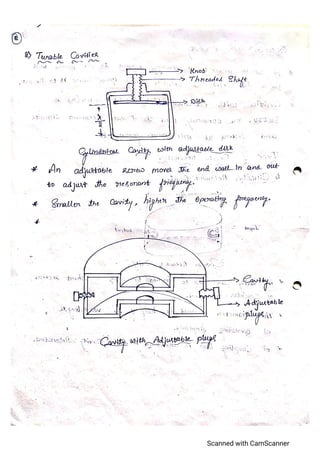 8
8) Tunable Cavities
Knob
Threaded Shaft
Disk
Cylindrical Cavity with adjustable disk
* An adjustable screw moves the end wall in and out
to adjust the resonant frequency.
* Smaller the Cavity, higher the operating frequency.
*
Cavity
Adjustable
plugs
Cavity with Adjustable plugs
Scanned with CamScanner